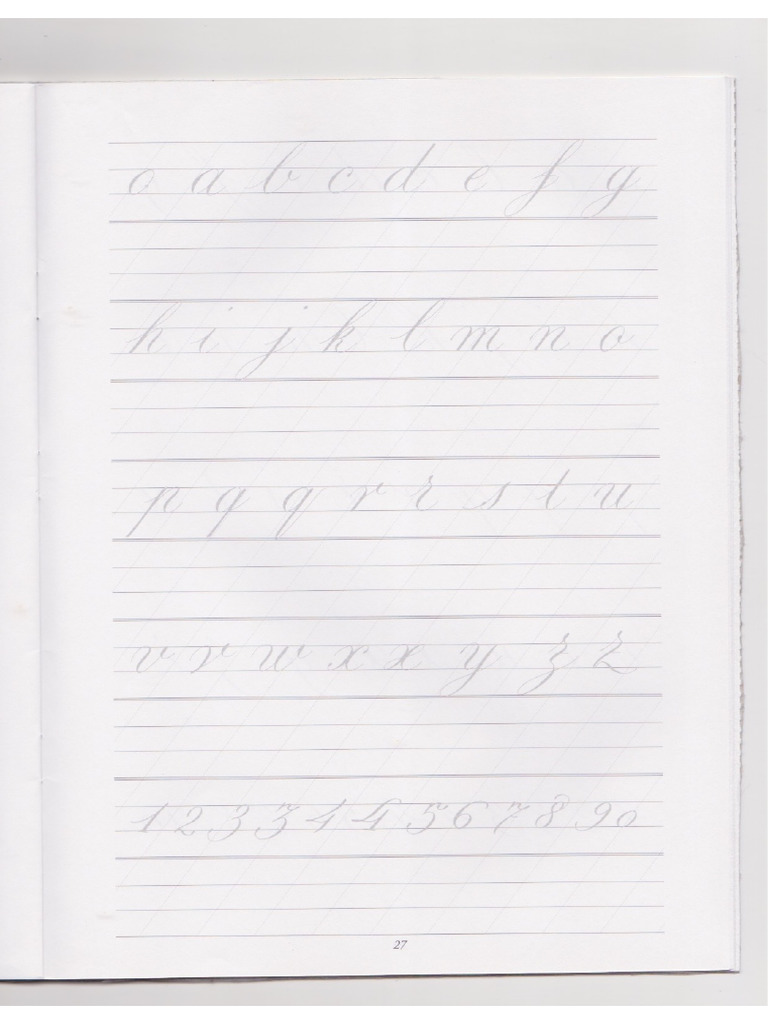 o a b c d e f g
h i j k l m n o
p q q r r s t u
v v w x x y z z
1 2 3 3 4 4 5 6 7 8 9 0
27